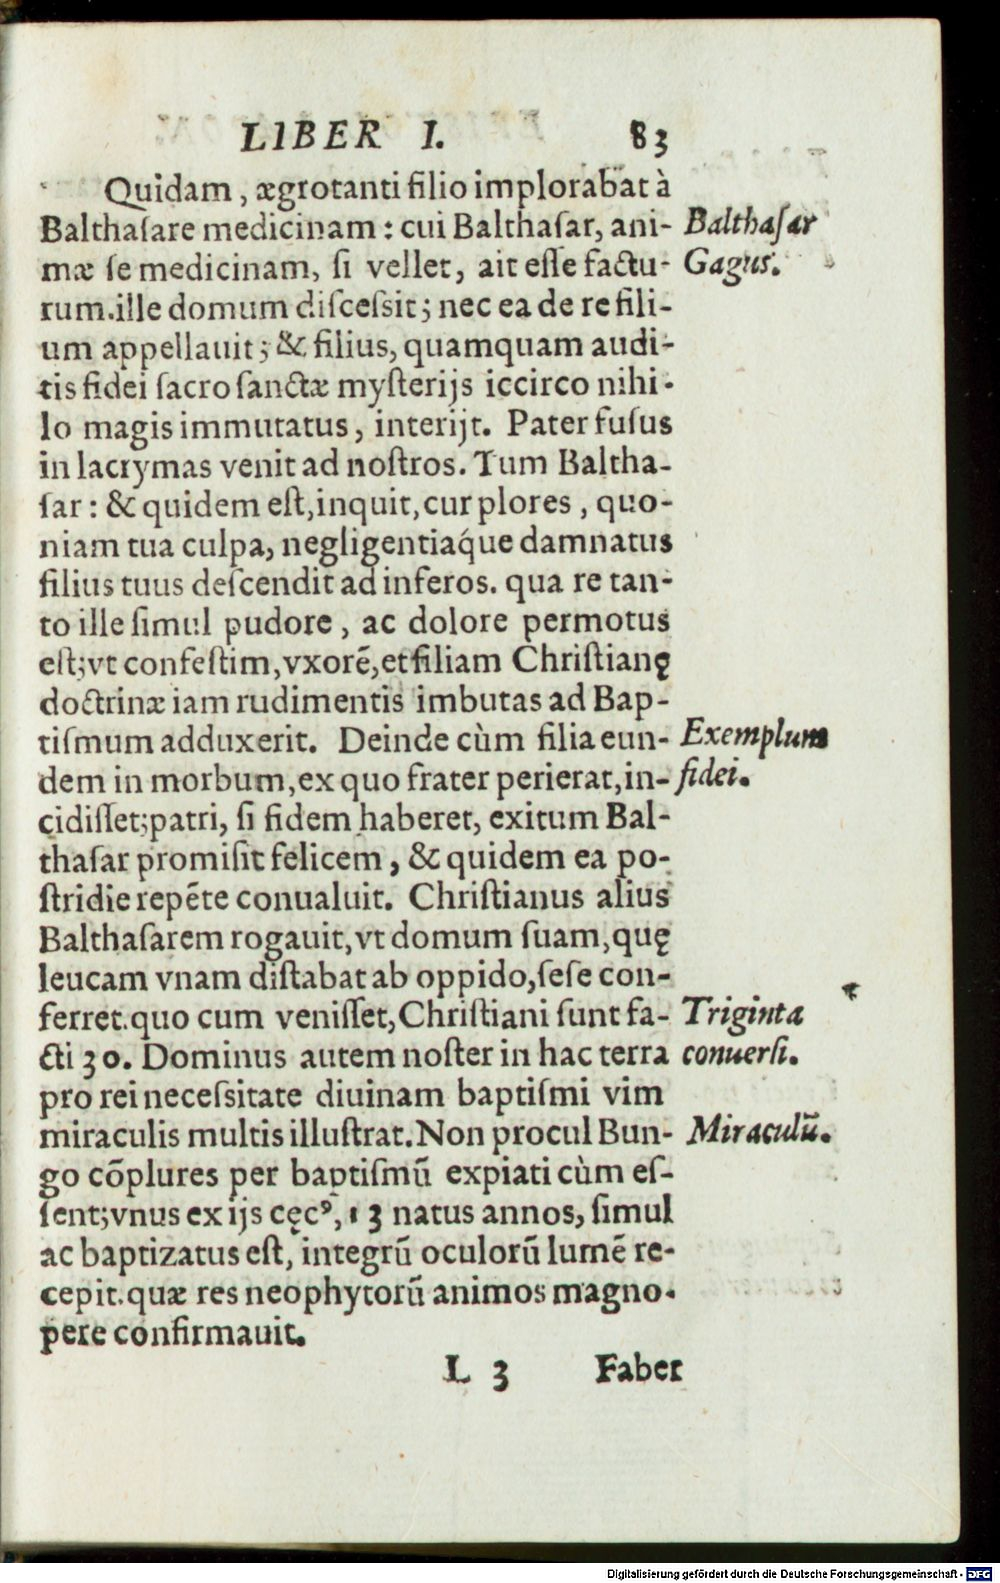 LIBER I. 83
Quidam, ægrotanti filio implorabat à
Balthaſare medicinam: cui Balthaſar, ani-
mæ ſe medicinam, ſi vellet, ait eſſe factu-
rum.ille domum diſceſsit; nec ea de re fili-
um appellauit; & filius, quamquam audi-
tis fidei ſacro ſanctæ myſterijs iccirco nihi-
lo magis immutatus, interijt. Pater fuſus
in lacrymas venit ad noſtros. Tum Baltha-
ſar: & quidem eſt,inquit,cur plores, quo-
niam tua culpa, negligentiaq́ue damnatus
filius tuus deſcendit ad inferos. qua re tan-
to ille ſimul pudore, ac dolore permotus
eſt;vt confeſtim,vxorẽ,et filiam Chriſtianę
doctrinæ iam rudimentis imbutas ad Bap-
tiſmum adduxerit. Deinde cùm filia eun-
dem in morbum,ex quo frater perierat,in-
cidiſſet;patri, ſi fidem haberet, exitum Bal-
thaſar promiſit felicem, & quidem ea po-
ſtridie repẽte conualuit. Chriſtianus alius
Balthaſarem rogauit,vt domum ſuam,quę
leucam vnam diſtabat ab oppido,ſeſe con-
ferret.quo cum veniſſet,Chriſtiani ſunt fa-
cti 30. Dominus autem noſter in hac terra
pro rei neceſsitate diuinam baptiſmi vim
miraculis multis illuſtrat.Non procul Bun-
go cõplures per baptiſmũ expiati cùm eſ-
ſent;vnus ex ijs cęcꝰ, 13 natus annos, ſimul
ac baptizatus eſt, integrũ oculorũ lumẽ re-
cepit.quæ res neophytorũ animos magno-
pere confirmauit.
L 3 Faber
Balthaſar
Gagus.
Exemplum
fidei.
Triginta
conuerſi.
Miraculũ.
Digitalisierung gefördert durch die Deutsche Forschungsgemeinschaft - DFG